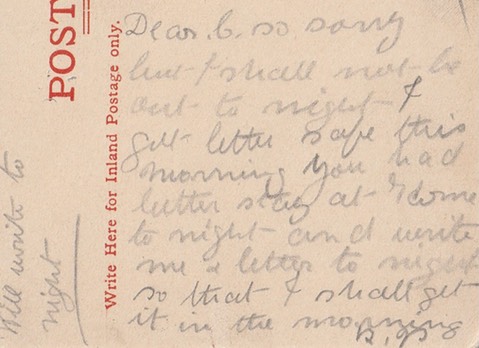 Dear C. so sorry
but I shall not be
out to night I
got letter safe this
morning you had
better stay at home
to night and write
me a letter to night
so that I shall get
it in the morning
Will write to
night
Write Here for Inland Postage only.
POST